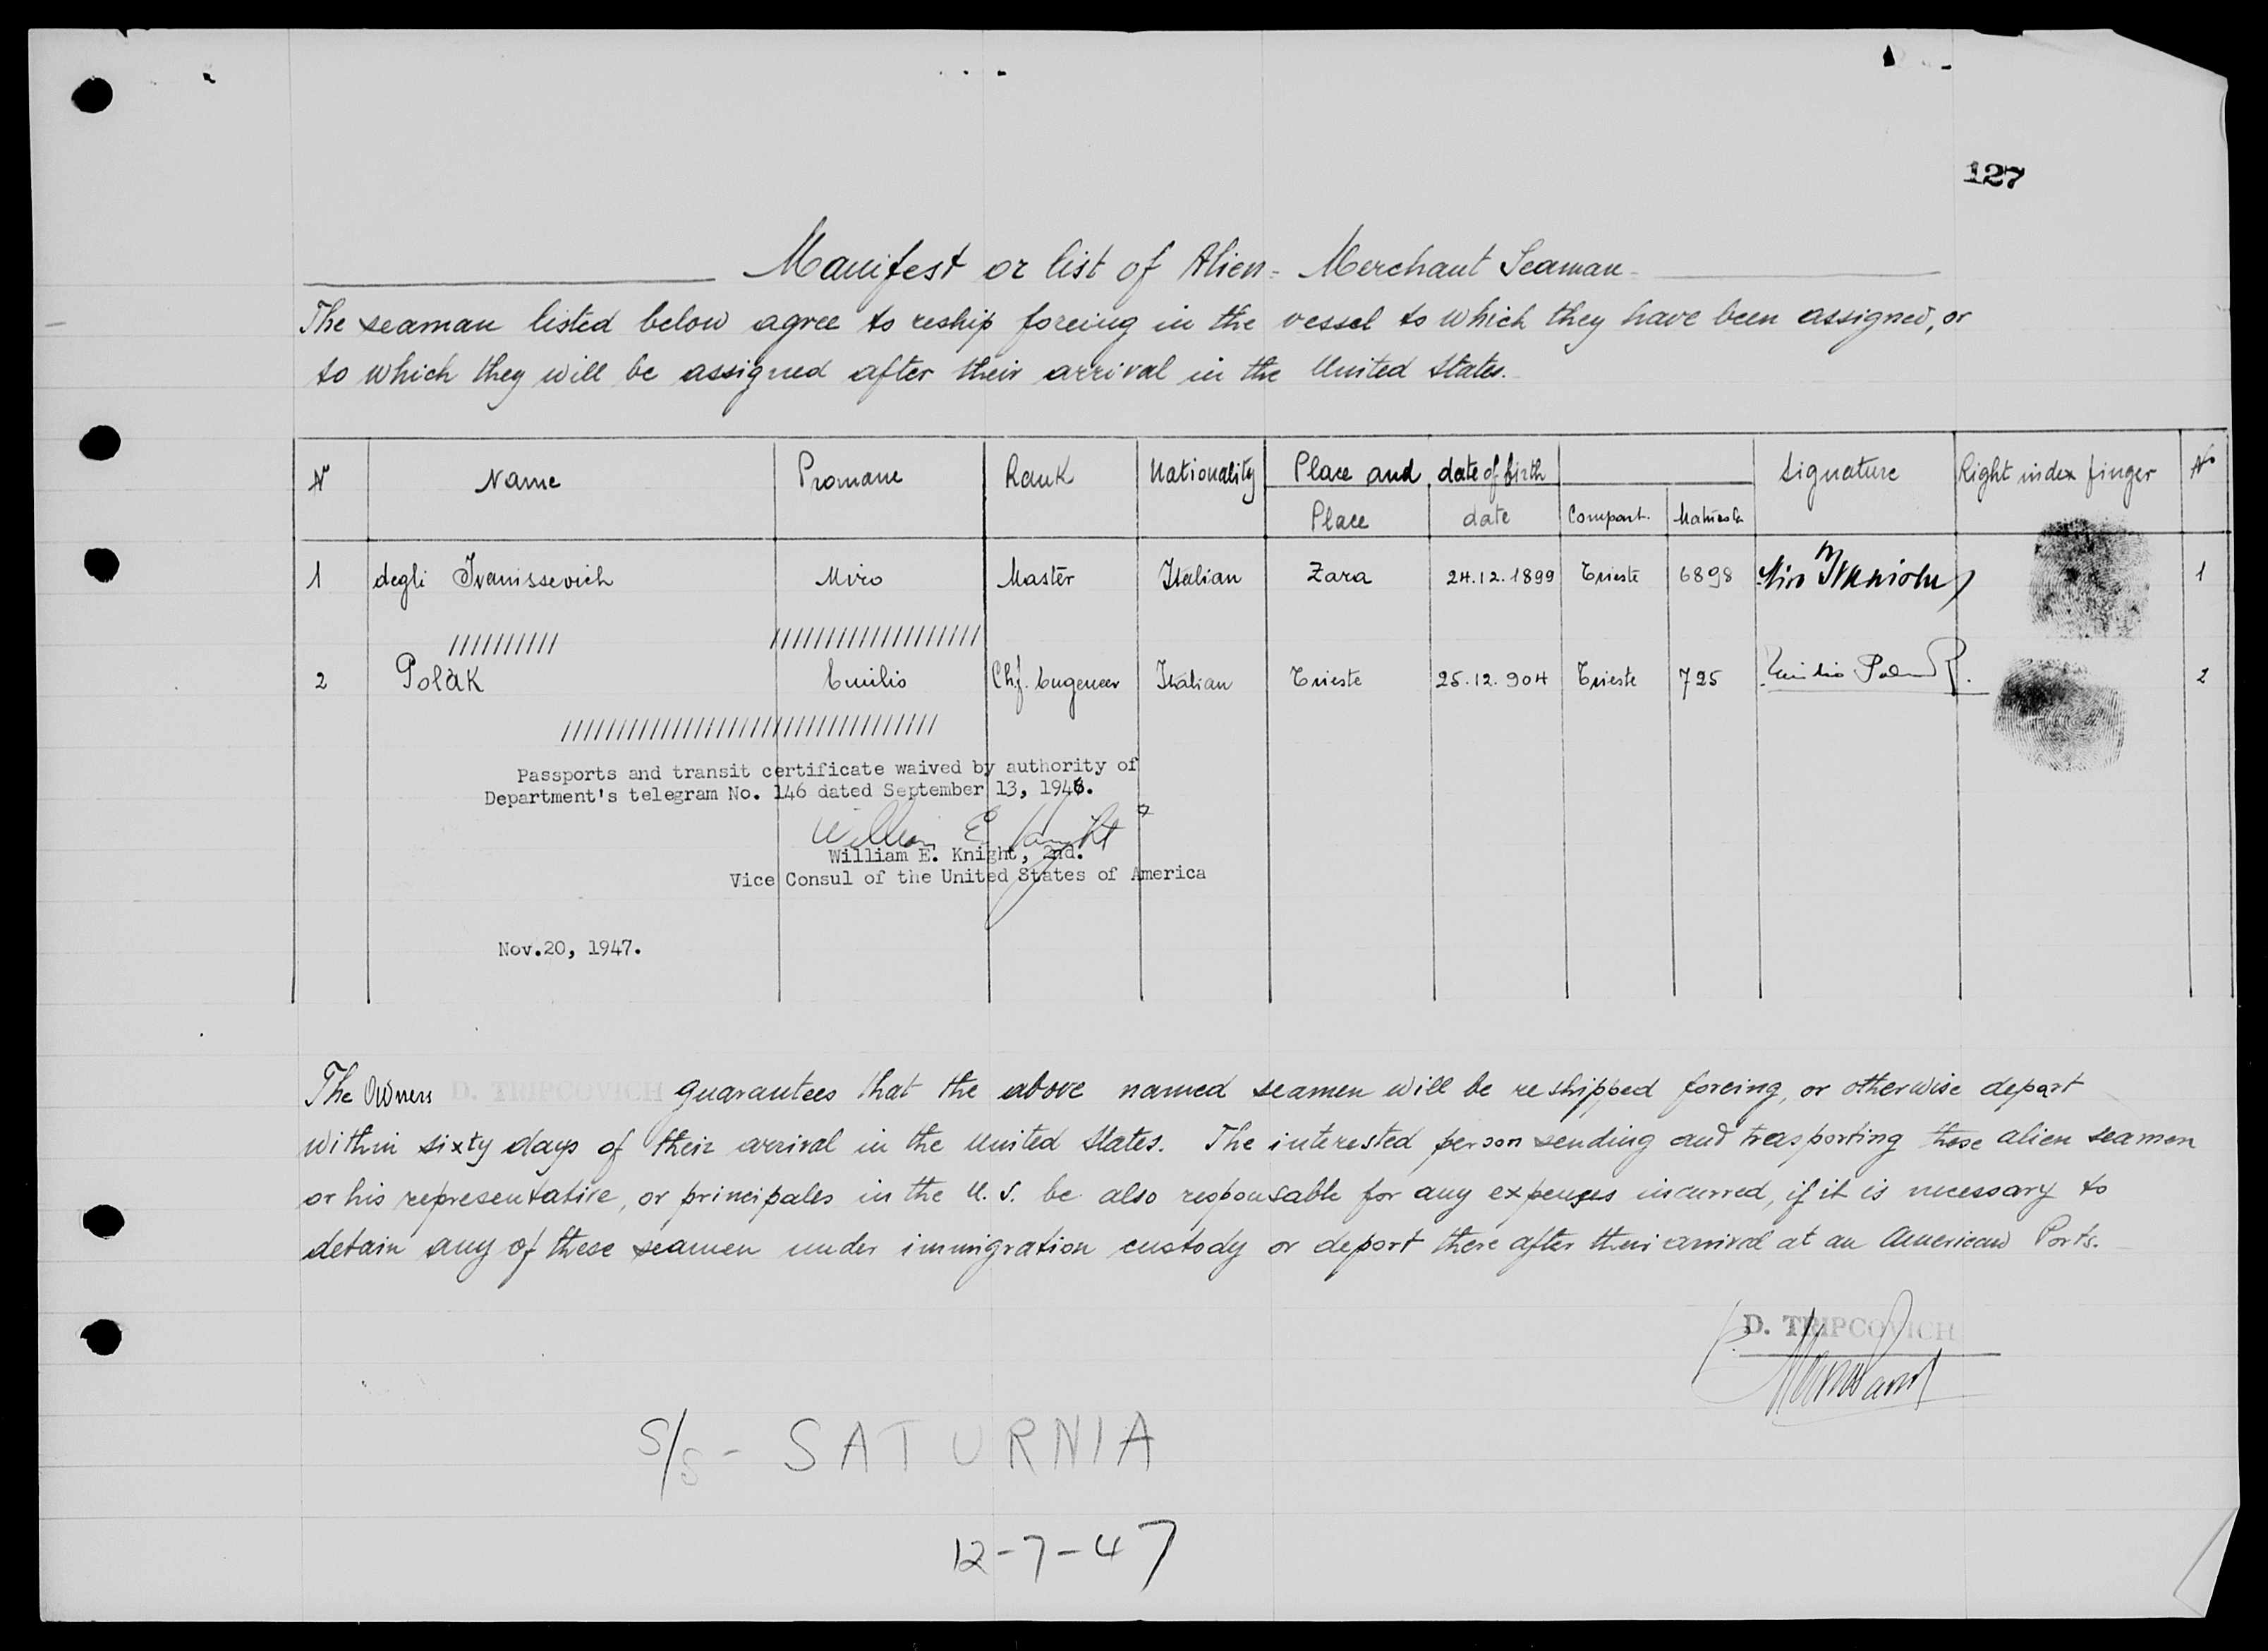 127
Manifest or list of Alien - Merchant Seaman
The seaman listed below agree to reship foreing in the vessel to which they have been assigned, or
to which they will be assigned after their arrival in the United States.
N Name Proname Rank Nationality Place and date of birth Signature Right index finger No
Place date Compart. Matricola
1 degli Ivanissevich Miro Master Italian Zara 24.12.1899 Trieste 6898 Miro 1
2 Polak Emilio Chf. Engeneer Italian Trieste 25.12.904 Trieste 725 Emilio 2
Passports and transit certificate waived by authority of
Department's telegram No. 146 dated September 13, 1946.
William E. Knight
William E. Knight, 2nd.
Vice Consul of the United States of America
Nov.20, 1947.
The Owners D. TRIPCOVICH guarantees that the above named seamen will be reshipped foreing, or otherwise depart
within sixty days of their arrival in the United States. The interested person sending and trasporting these alien seamen
or his representative, or principales in the U.S. be also responsable for any expenses incurred, if it is necessary to
detain any of these seamen under immigration custody or deport there after their arrival at an American Ports.
D. TRIPCOVICH
S/S - SATURNIA
12-7-47